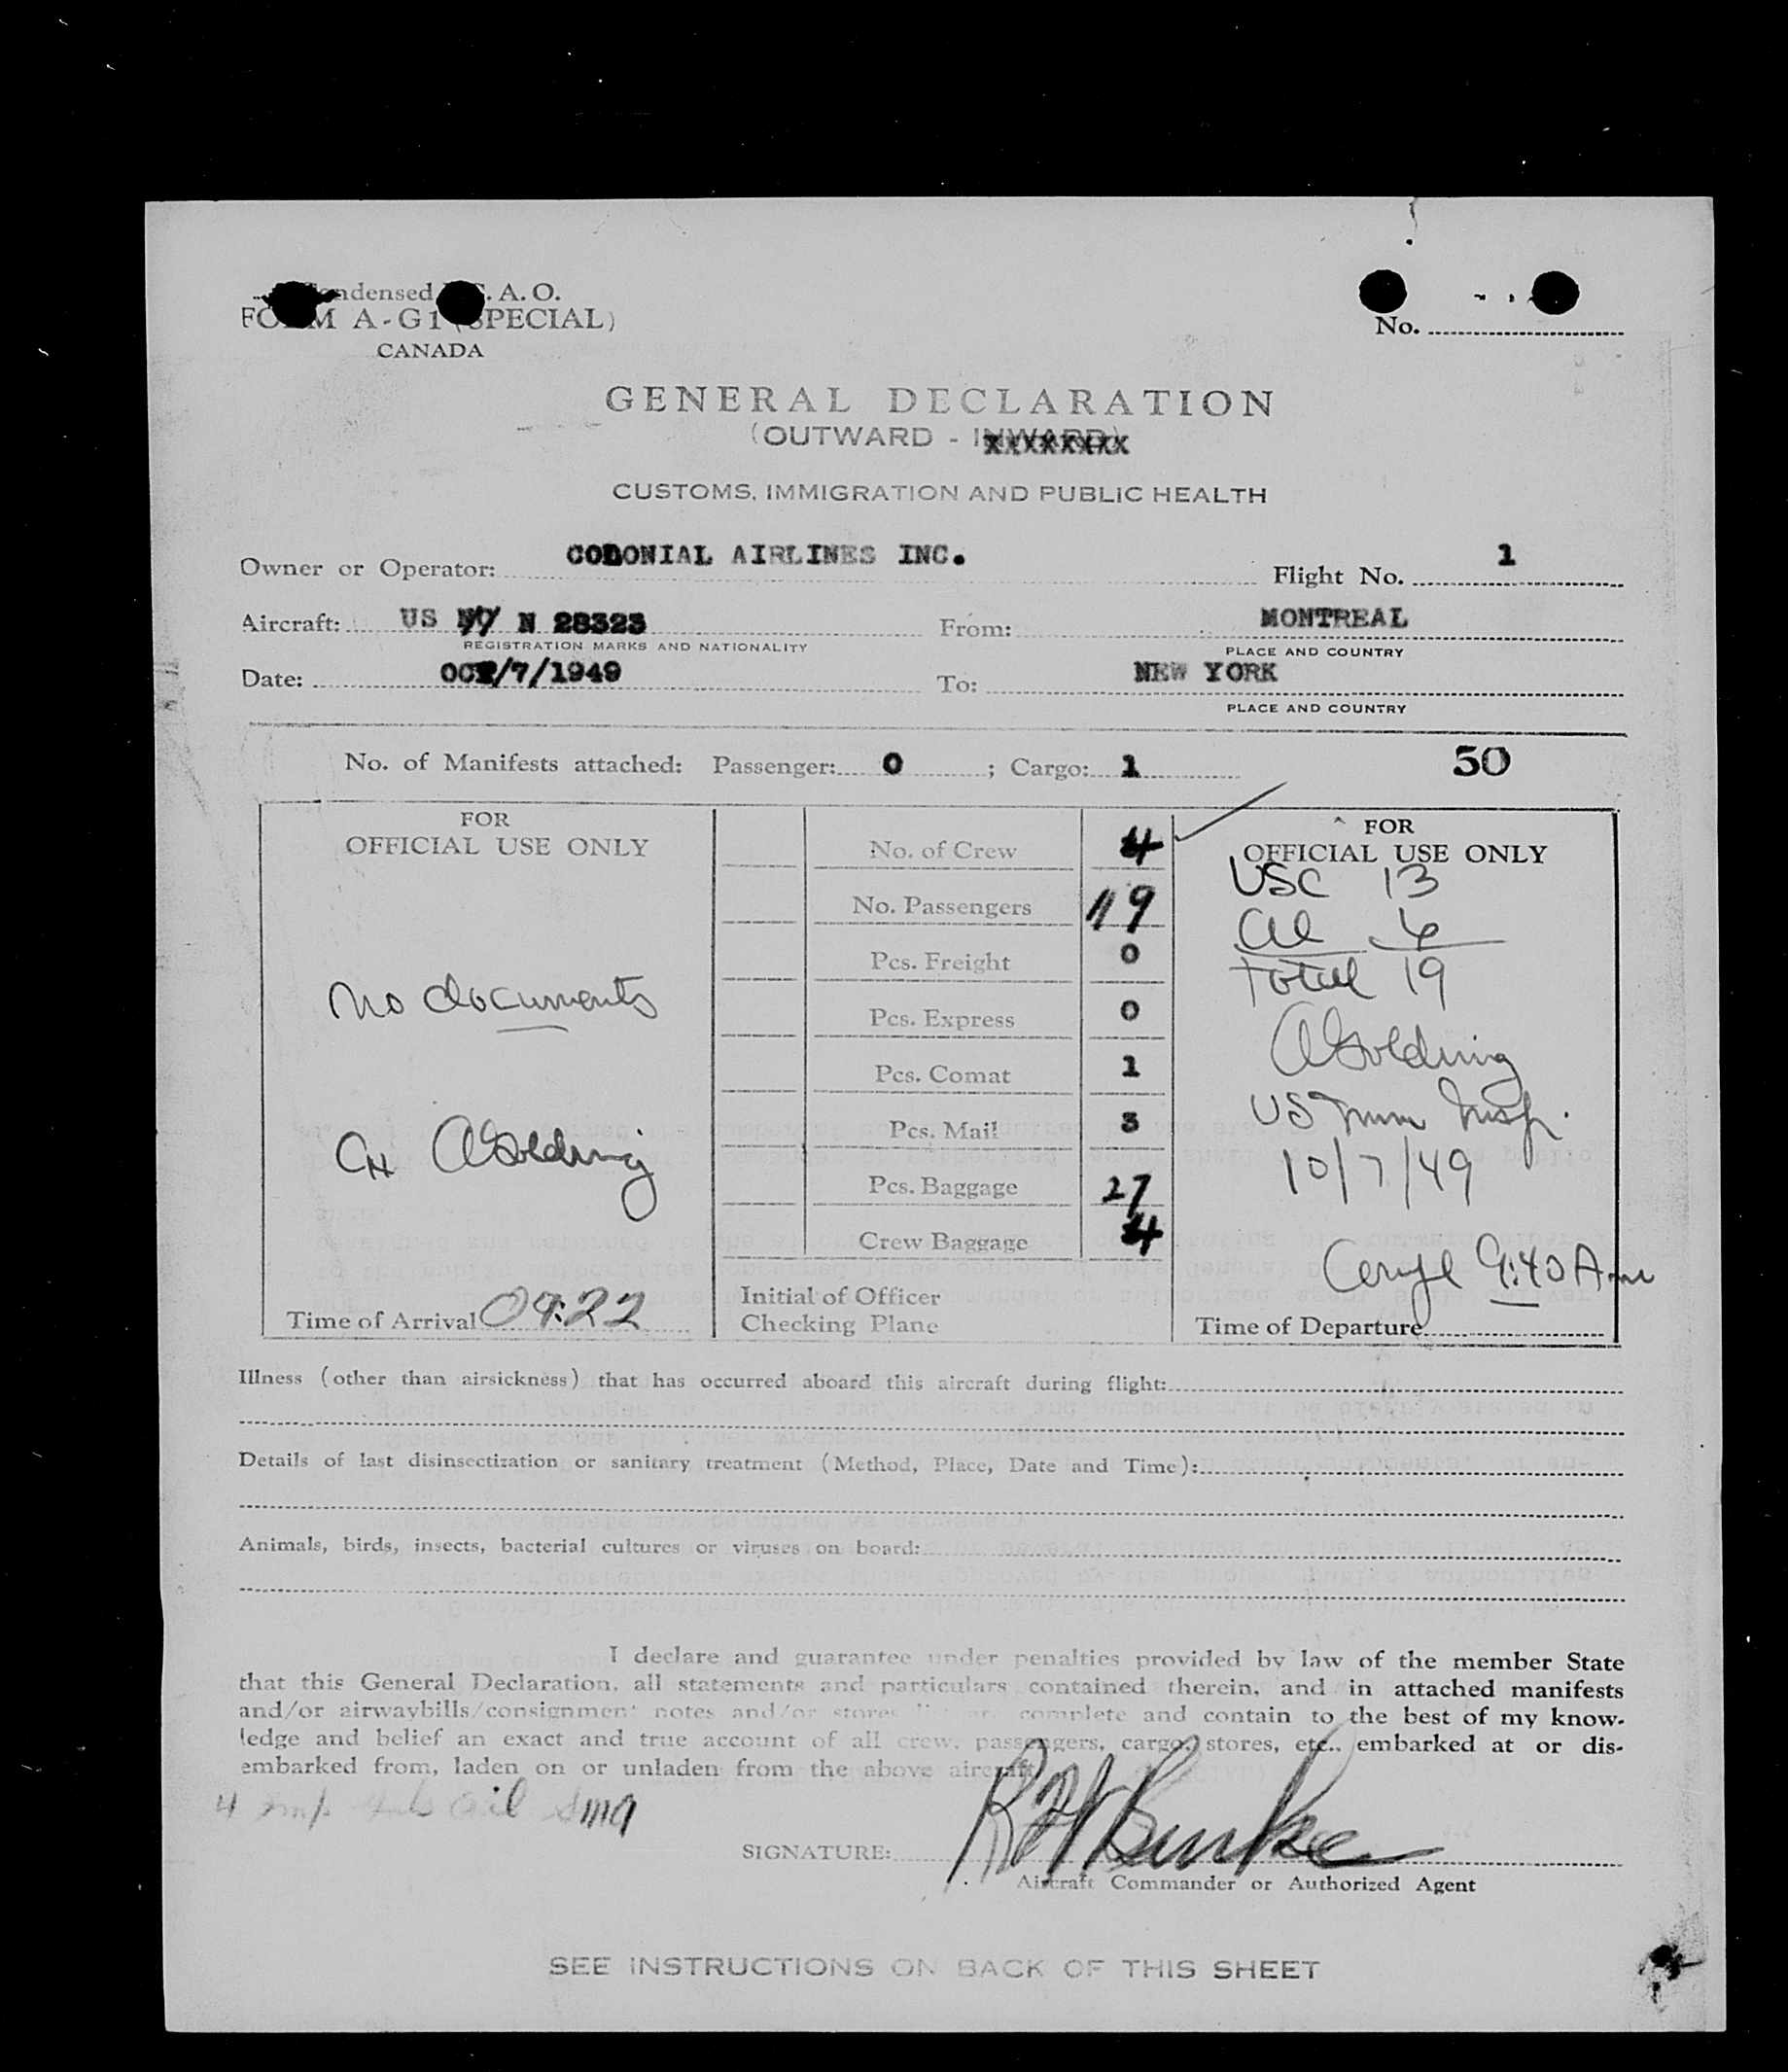 Condensed I.C.A.O.
FORM A-G1 (SPECIAL)
CANADA
No.
GENERAL DECLARATION
(OUTWARD - INWARD)
CUSTOMS, IMMIGRATION AND PUBLIC HEALTH
Owner or Operator: COLONIAL AIRLINES INC. Flight No. 1
Aircraft: US N 28323 From: MONTREAL
REGISTRATION MARKS AND NATIONALITY PLACE AND COUNTRY
Date: OCT/7/1949 To: NEW YORK
PLACE AND COUNTRY
No. of Manifests attached: Passenger: 0 ; Cargo: 1 50
FOR
OFFICIAL USE ONLY
no documents
A Golding
Time of Arrival 09:22
No. of Crew 4
No. Passengers 19
Pcs. Freight 0
Pcs. Express 0
Pcs. Comat 1
Pcs. Mail 3
Pcs. Baggage 27
Crew Baggage 4
Initial of Officer
Checking Plane
FOR
OFFICIAL USE ONLY
USC 13
Al 6
Total 19
A Golding
US Imm Insp.
10/7/49
9:40 Am
Time of Departure
Illness (other than airsickness) that has occurred aboard this aircraft during flight:
Details of last disinsectization or sanitary treatment (Method, Place, Date and Time):
Animals, birds, insects, bacterial cultures or viruses on board:
I declare and guarantee under penalties provided by law of the member State
that this General Declaration, all statements and particulars contained therein, and in attached manifests
and/or airwaybills/consignment notes and/or stores list are complete and contain to the best of my know-
ledge and belief an exact and true account of all crew, passengers, cargo, stores, etc., embarked at or dis-
embarked from, laden on or unladen from the above aircraft.
SIGNATURE: R H Burke
Aircraft Commander or Authorized Agent
SEE INSTRUCTIONS ON BACK OF THIS SHEET